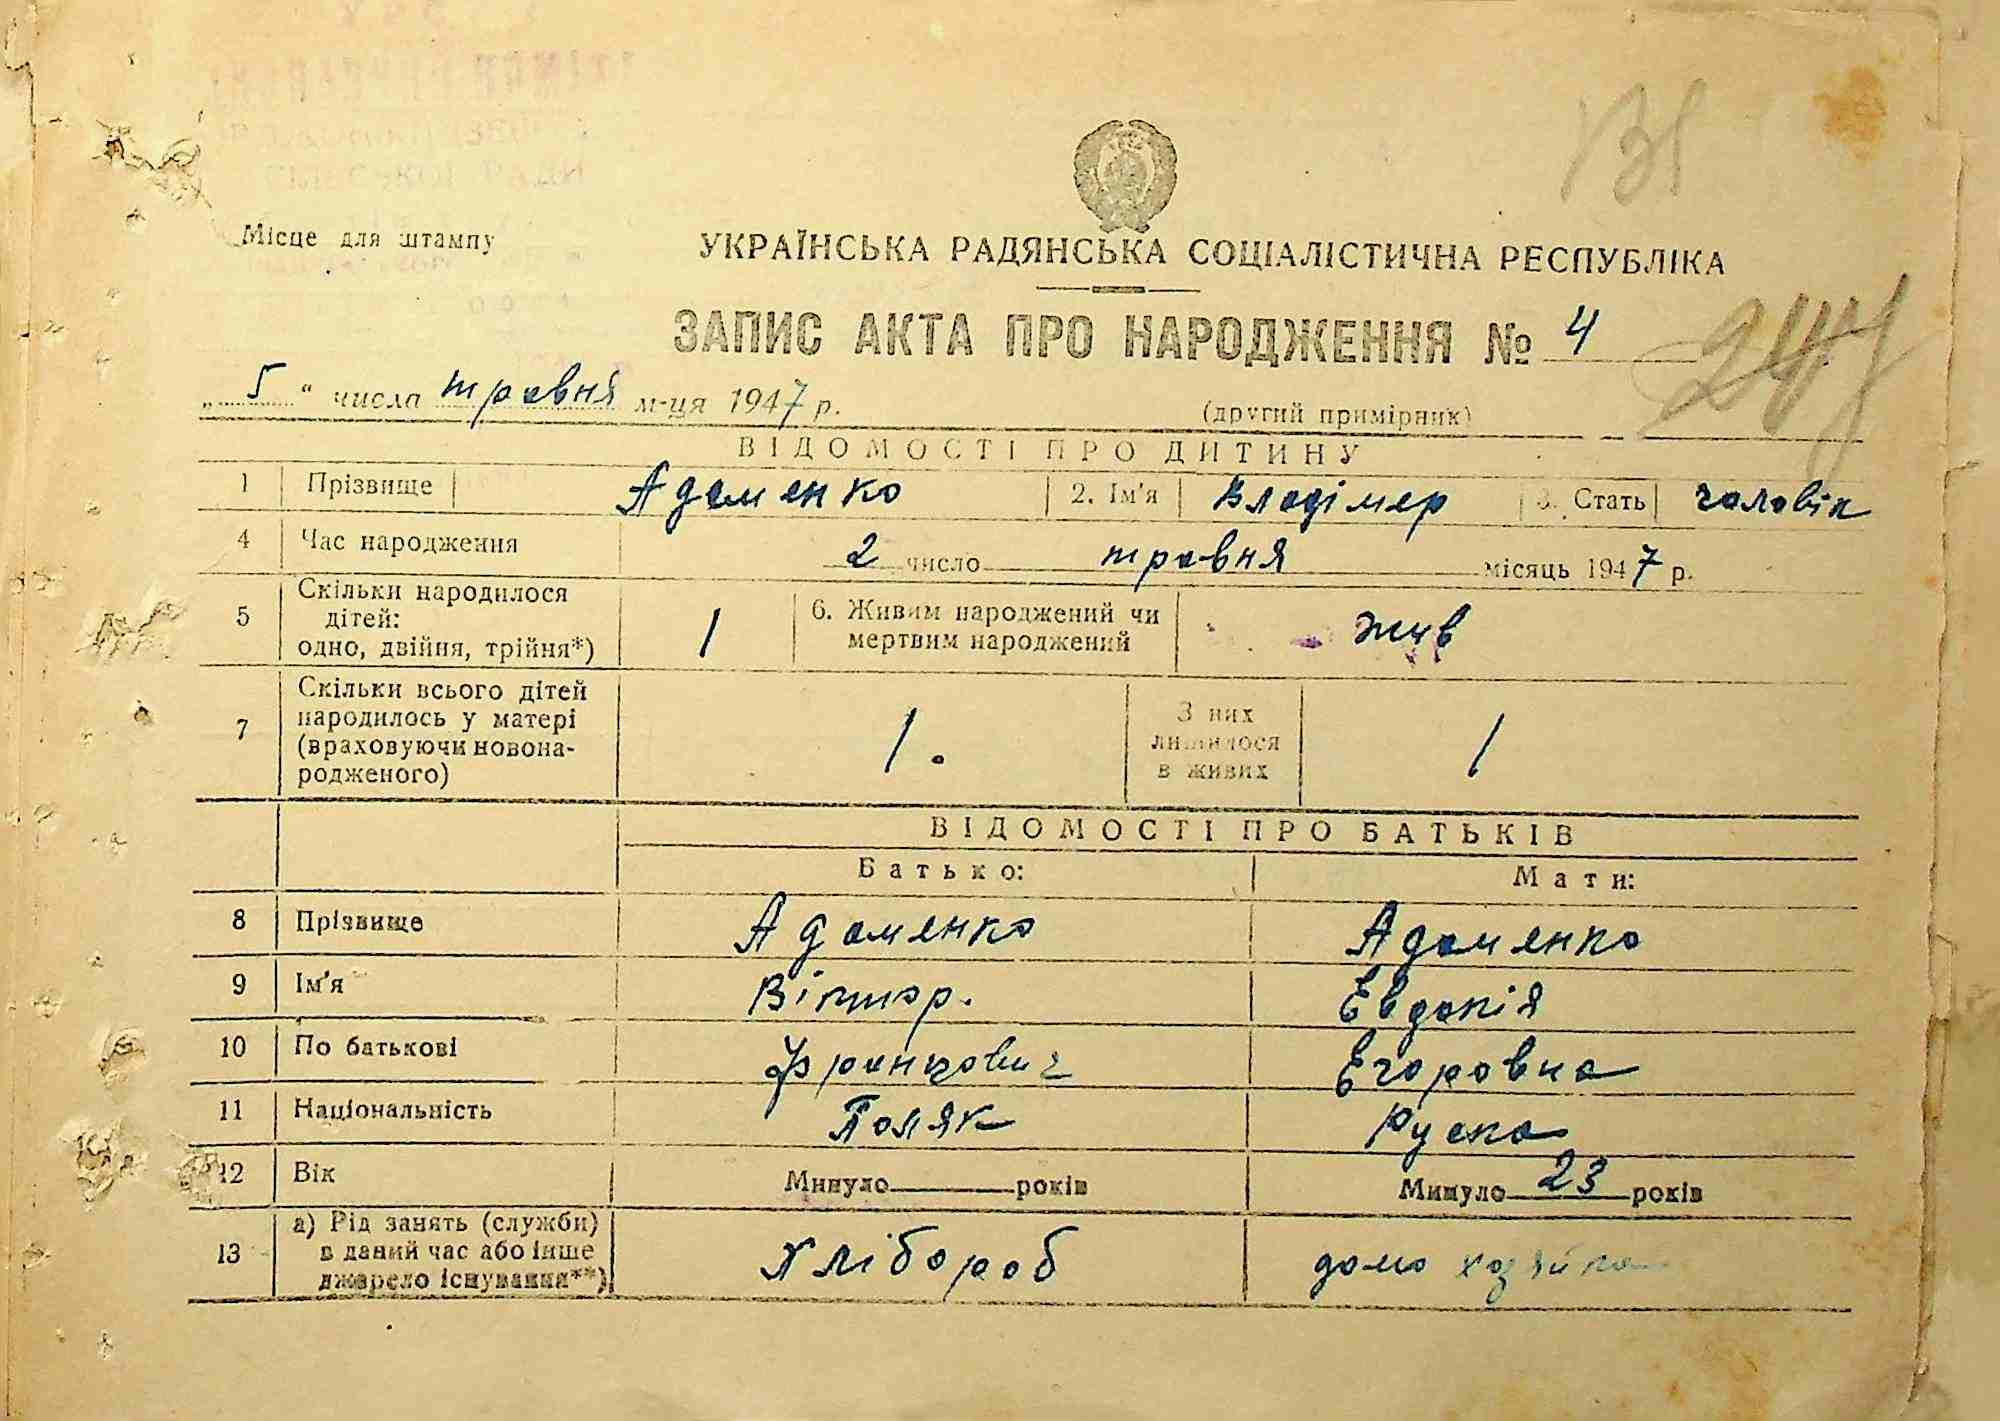 131
Місце для штампу
УКРАЇНСЬКА РАДЯНСЬКА СОЦІАЛІСТИЧНА РЕСПУБЛІКА
ЗАПИС АКТА ПРО НАРОДЖЕННЯ № 4
„5“ числа травня м-ця 1947 р.
(другий примірник)
ВІДОМОСТІ ПРО ДИТИНУ
1 Прізвище Адаменко 2. Ім'я Владімер 3. Стать чоловік
4 Час народження 2 число травня місяць 1947 р.
5 Скільки народилося дітей: одно, двійня, трійня*) 1 6. Живим народжений чи мертвим народжений жив
7 Скільки всього дітей народилось у матері (враховуючи новонародженого) 1. З них лишилося в живих 1
ВІДОМОСТІ ПРО БАТЬКІВ
Батько: Мати:
8 Прізвище Адаменко Адаменко
9 Ім'я Віктор. Евдокія
10 По батькові Францович Егоровна
11 Національність Поляк Руска
12 Вік Минуло років Минуло 23 років
13 а) Рід занять (служби) в даний час або інше джерело існування**) Хлібороб домо хазяйка